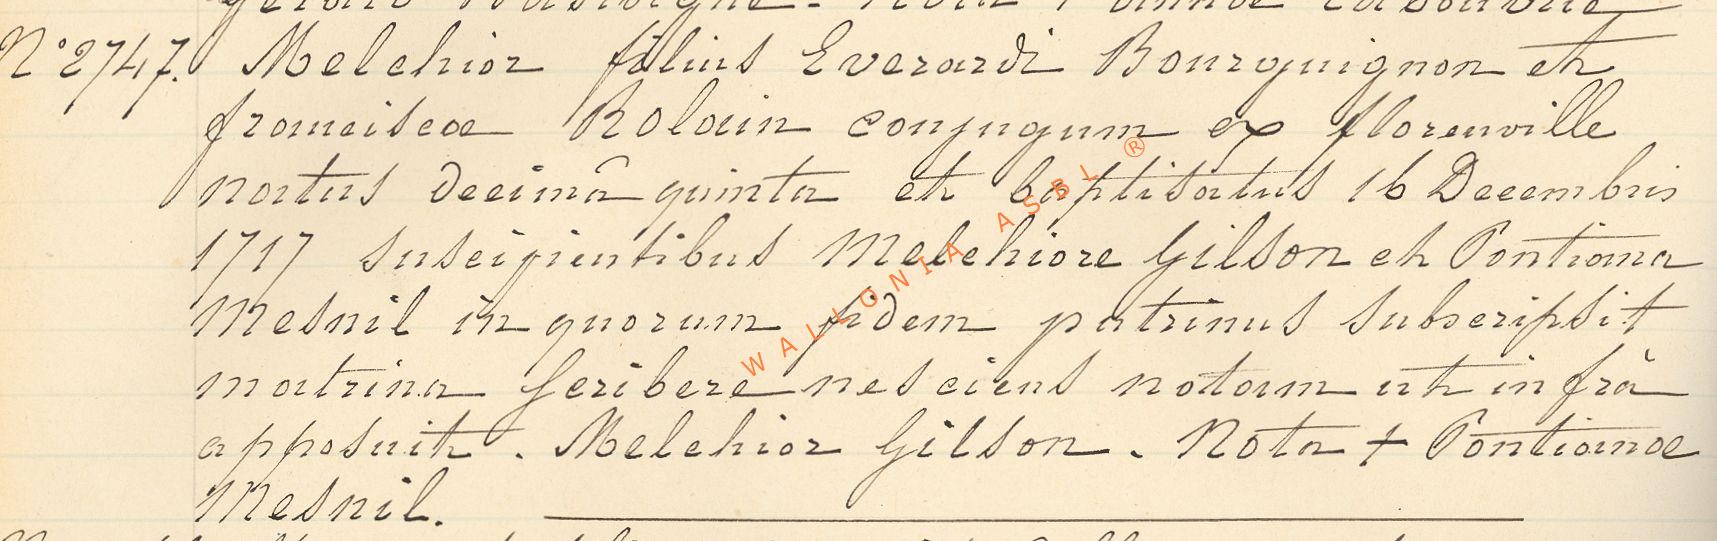 N° 2747. Melchior filius Everardi Bourguignon et
franciscae Rolain conjugum ex florenville
natus decimâ quinta et baptisatus 16 Decembris
1717 suscipientibus Melchiore Gilson et Pontiana
Mesnil in quorum fidem patrinus subscripsit
matrina scribere nesciens notam ut infrà
apposuit. Melchior Gilson. Nota + Pontianae
Mesnil.
WALLONIA ASBL ®